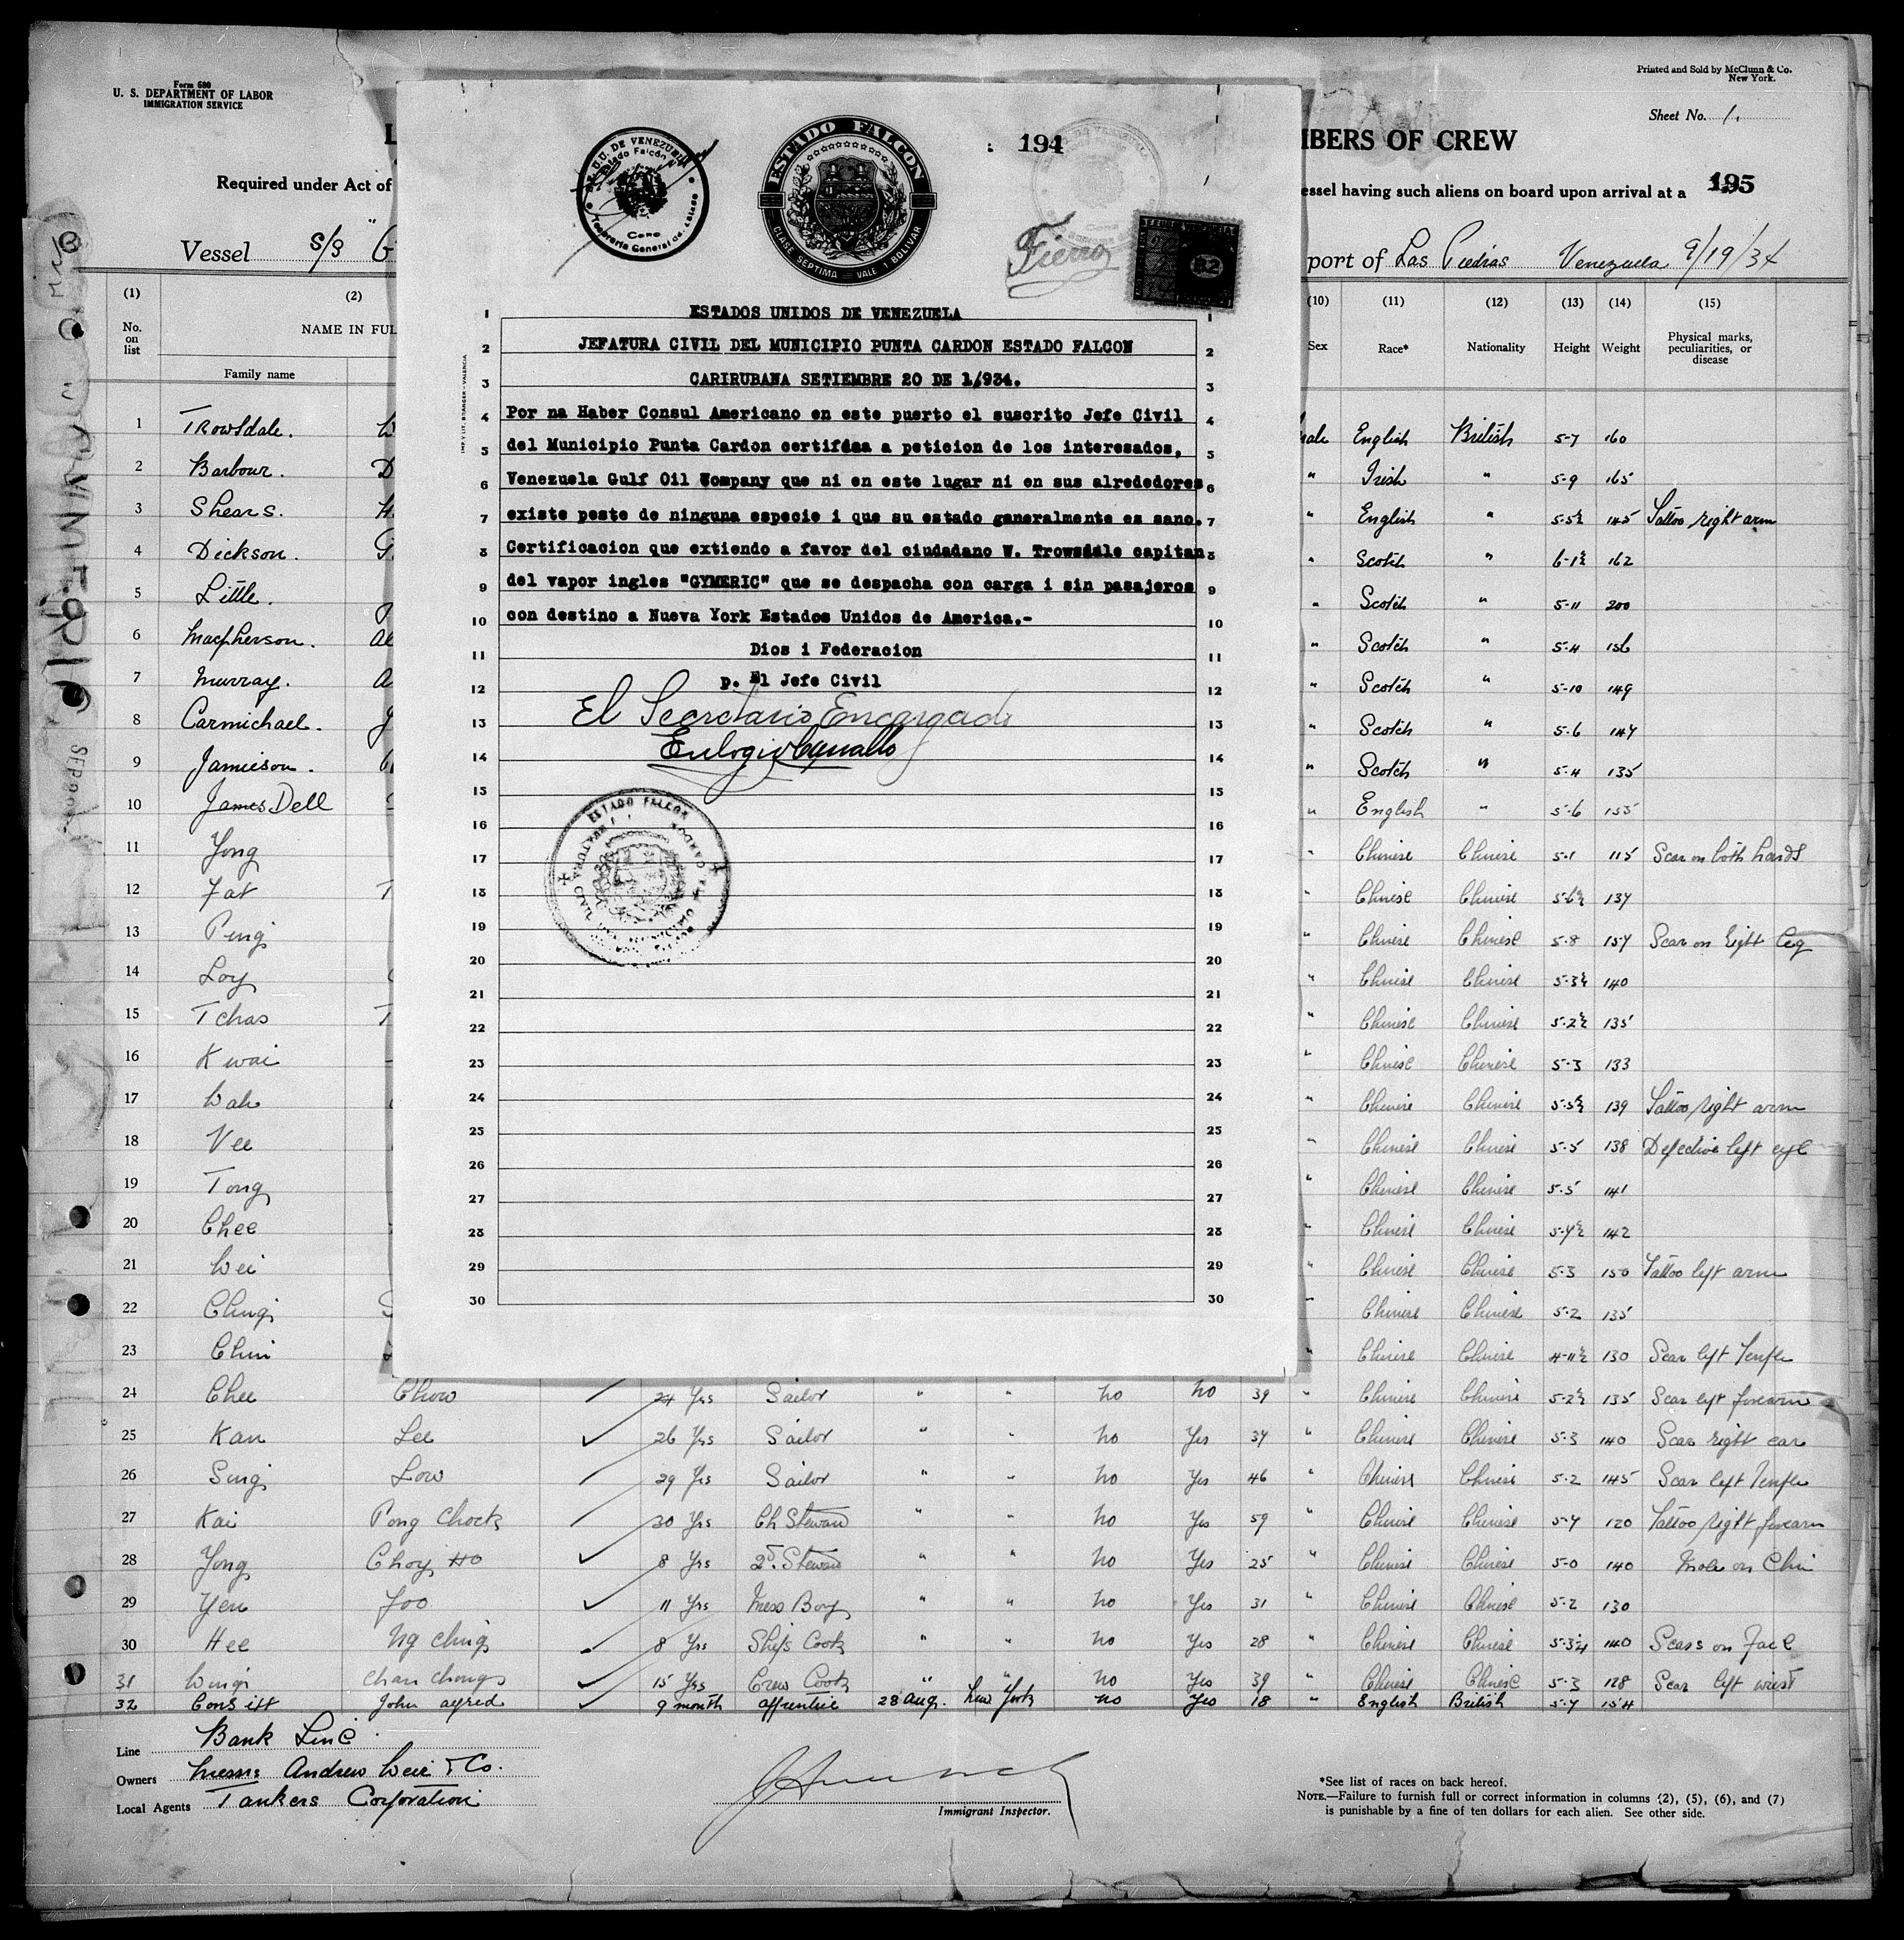 Form 680
U. S. DEPARTMENT OF LABOR
IMMIGRATION SERVICE
Printed and Sold by McClunn & Co.
New York.
Sheet No. 1.
MBERS OF CREW
Required under Act of
essel having such aliens on board upon arrival at a
195
Vessel S/S "G
port of Las Piedras Venezuela 9/19/34
E.E.U.U. DE VENEZUELA
Estado Falcón
Coro
Tesorería General del Estado
ESTADO FALCON
CLASE SEPTIMA = VALE 1 BOLIVAR
: 194
Fierro
1 ESTADOS UNIDOS DE VENEZUELA 1
2 JEFATURA CIVIL DEL MUNICIPIO PUNTA CARDON ESTADO FALCON 2
3 CARIRUBANA SETIEMBRE 20 DE 1/934. 3
4 Por na Haber Consul Americano en este puerto el suscrito Jefe Civil 4
5 del Municipio Punta Cardon a peticion de los interesados, 5
6 Venezuela Gulf Oil Company que ni en este lugar ni en sus alrededores 6
7 existe peste de ninguna especie i que su estado ganeralmente es sano. 7
8 Certificacion que extiendo a favor del ciudadano W. Trowsdale capitan 8
9 del vapor ingles "GYMERIC" que se despacha con carga i sin pasajeros 9
10 con destino a Nueva York Estados Unidos de America.- 10
11 Dios i Federacion 11
12 p. El Jefe Civil 12
13 El Secretario Encargado 13
14 Eulogio 14
15 15
16 16
17 17
18 18
19 19
20 20
21 21
22 22
23 23
24 24
25 25
26 26
27 27
28 28
29 29
30 30
ESTADO FALCON
JEFATURA CIVIL DEL MUNICIPIO
(1) (2) (10) (11) (12) (13) (14) (15)
No. on list NAME IN FUL Sex Race* Nationality Height Weight Physical marks, peculiarities, or disease
Family name
1 Trowsdale. W male English British 5-7 160
2 Barbour. D " Irish " 5-9 165
3 Shears. H " English " 5-5½ 145 Tattoo right arm
4 Dickson. G " Scotch " 6-1½ 162
5 Little. " Scotch " 5-11 200
6 Macpherson. Al " Scotch " 5-4 156
7 Murray. A " Scotch " 5-10 149
8 Carmichael. J " Scotch " 5-6 147
9 Jamieson. " Scotch " 5-4 135
10 James Dell " English " 5-6 155
11 Yong " Chinese Chinese 5-1 115 Scar on both hands
12 Fat T " Chinese Chinese 5-6½ 137
13 Ping " Chinese Chinese 5-8 157 Scar on right leg
14 Loy " Chinese Chinese 5-3½ 140
15 Tchao T " Chinese Chinese 5-2½ 135
16 Kwai " Chinese Chinese 5-3 133
17 Wah " Chinese Chinese 5-5½ 139 Tattoo right arm
18 Vee " Chinese Chinese 5-5 138 Defective left eye
19 Tong " Chinese Chinese 5-5 141
20 Chee " Chinese Chinese 5-4½ 142
21 Wei " Chinese Chinese 5-3 150 Tattoo left arm
22 Ching " Chinese Chinese 5-2 135
23 Chin " Chinese Chinese 4-11½ 130 Scar left Temple
24 Chee Chow 24 Yrs Sailor " " No No 39 " Chinese Chinese 5-2½ 135 Scar left forearm
25 Kan Lee 26 Yrs Sailor " " No Yes 37 " Chinese Chinese 5-3 140 Scar right ear
26 Sing Low 29 Yrs Sailor " " No Yes 46 " Chinese Chinese 5-2 145 Scar left Temple
27 Kai Pong Chock 30 Yrs Ch Steward " " No Yes 59 " Chinese Chinese 5-4 120 Tattoo right forearm
28 Yong Choy Ho 8 Yrs 2d. Steward " " No Yes 25 " Chinese Chinese 5-0 140 Mole on Chin
29 Yen Foo 11 Yrs Mess Boy " " No Yes 31 " Chinese Chinese 5-2 130
30 Hee Ng Ching 8 Yrs Ships Cook " " No Yes 28 " Chinese Chinese 5-3¼ 140 Scars on Face
31 Wing Chan Chong 15 Yrs Crew Cook " " No Yes 39 " Chinese Chinese 5-3 128 Scar left wrist
32 John alfred 9 month apprentice 28 Aug. New York no Yes 18 " English British 5-7 154
Line Bank Line
Owners Messrs Andrew Weir & Co.
Local Agents Tankers Corporation
Immigrant Inspector.
*See list of races on back hereof.
NOTE.—Failure to furnish full or correct information in columns (2), (5), (6), and (7)
is punishable by a fine of ten dollars for each alien. See other side.